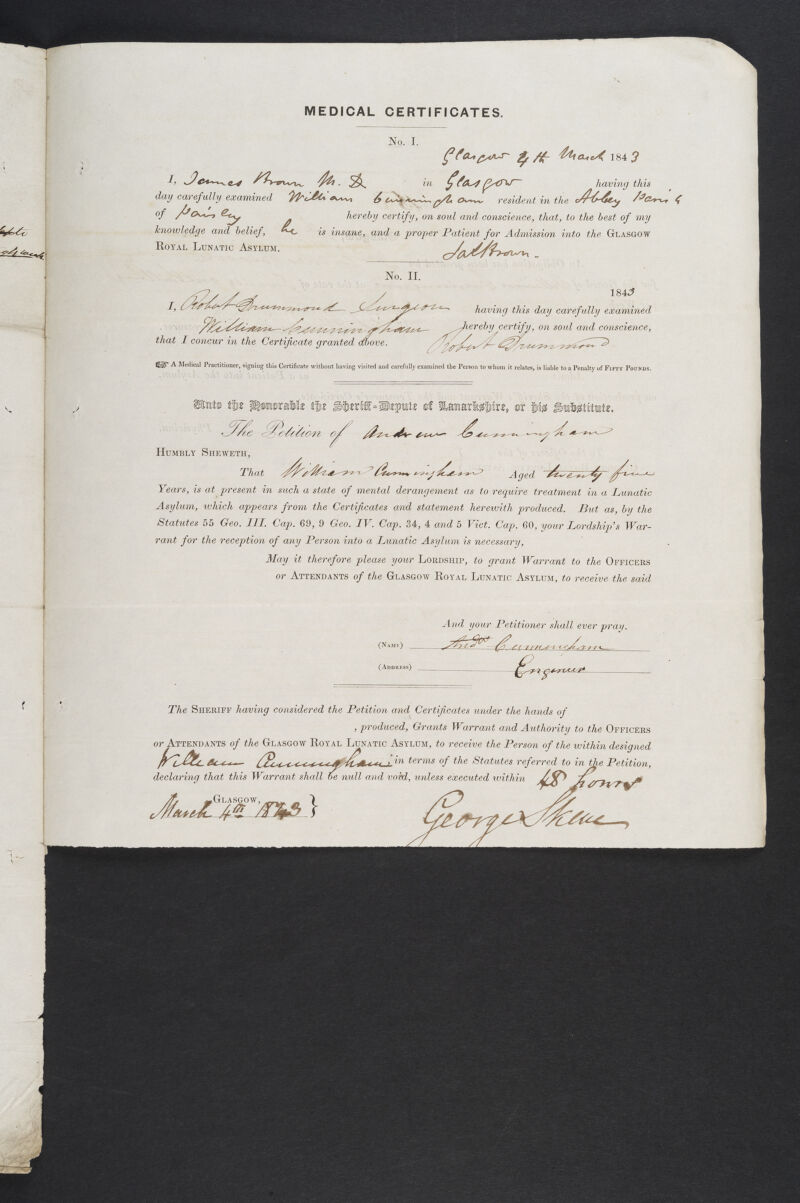 MEDICAL CERTIFICATES.
No. I.
Glasgow 4th March 1843
I, James Brown M. D in Glasgow having this
day carefully examined William Cunningham resident in the Abbey Parish
of Paisley hereby certify, on soul and conscience, that, to the best of my
knowledge and belief, he is insane, and a proper Patient for Admission into the GLASGOW
ROYAL LUNATIC ASYLUM.
Jas Brown.
No. II.
1843
I, Robert Drummond Surgeon having this day carefully examined
William Cunningham hereby certify, on soul and conscience,
that I concur in the Certificate granted above. Robert Drummond
☞ A Medical Practitioner, signing this Certificate without having visited and carefully examined the Person to whom it relates, is liable to a Penalty of FIFTY POUNDS.
Unto the Honorable the Sheriff-Depute of Lanarkshire, or his Substitute.
The Petition of Andrew Cunningham
HUMBLY SHEWETH,
THAT William Cunningham Aged twenty five
Years, is at present in such a state of mental derangement as to require treatment in a Lunatic
Asylum, which appears from the Certificates and statement herewith produced. But as, by the
Statutes 55 Geo. III. Cap. 69, 9 Geo. IV. Cap. 34, 4 and 5 Vict. Cap. 60, your Lordship's War-
rant for the reception of any Person into a Lunatic Asylum is necessary,
May it therefore please your LORDSHIP, to grant Warrant to the OFFICERS
or ATTENDANTS of the GLASGOW ROYAL LUNATIC ASYLUM, to receive the said
And your Petitioner shall ever pray.
(NAME) Andw Cunningham
(ADDRESS) Engineer
The SHERIFF having considered the Petition and Certificates under the hands of
, produced, Grants Warrant and Authority to the OFFICERS
or ATTENDANTS of the GLASGOW ROYAL LUNATIC ASYLUM, to receive the Person of the within designed
William Cunningham in terms of the Statutes referred to in the Petition,
declaring that this Warrant shall be null and void, unless executed within 48 hours
GLASGOW,
March 4th 1843 }
George Skene